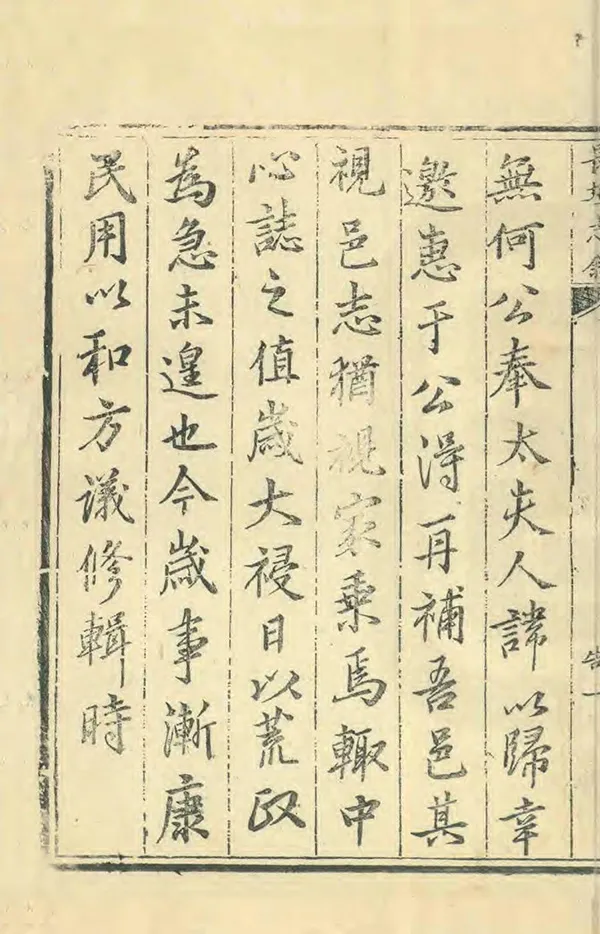 無何公奉太夫人諱以歸幸
邀惠于公得再補吾邑其
視邑志猶視家乗焉輙中
心誌之值歲大祲日以荒政
為急未遑也今歲事漸康
民用以和方議修輯時